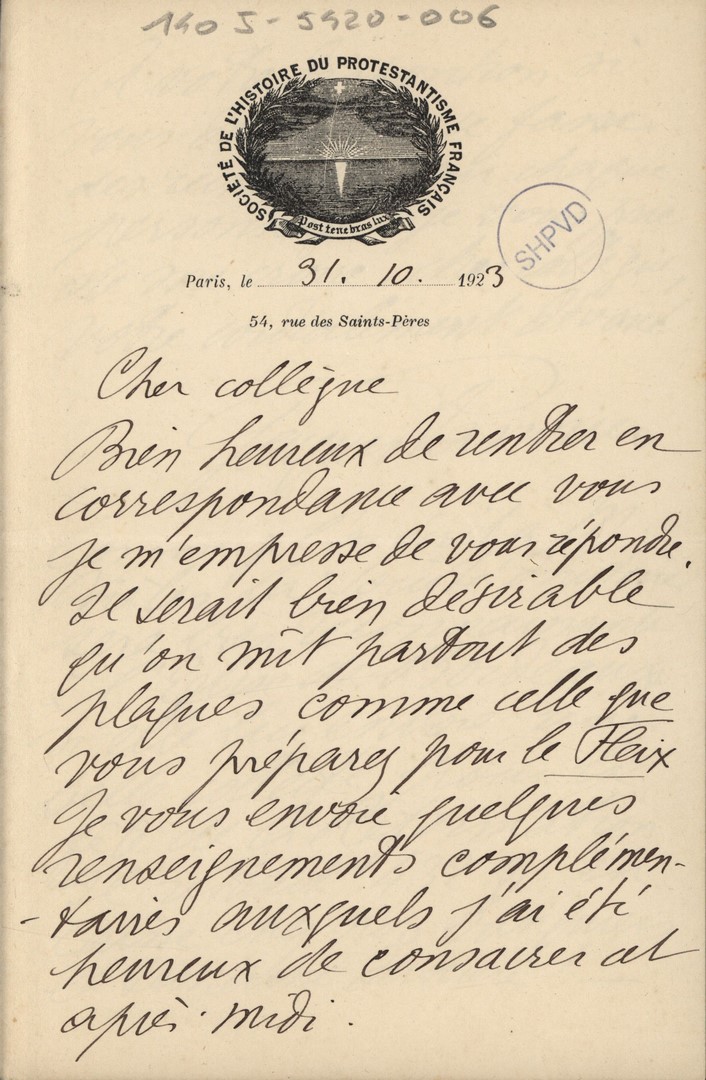 140 J-5920-006
SOCIÉTÉ DE L'HISTOIRE DU PROTESTANTISME FRANÇAIS
Post tenebras lux
SHPVD
Paris, le 31. 10. 1923
54, rue des Saints-Pères
Cher collègue
Bien heureux de rentrer en
correspondance avec vous
je m'empresse de vous répondre.
Il serait bien désirable
qu'on mît partout des
plaques comme celle que
vous préparez pour le Fleix
Je vous envoie quelques
renseignements complémen-
-taires auxquels j'ai été
heureux de consacrer cet
après-midi.